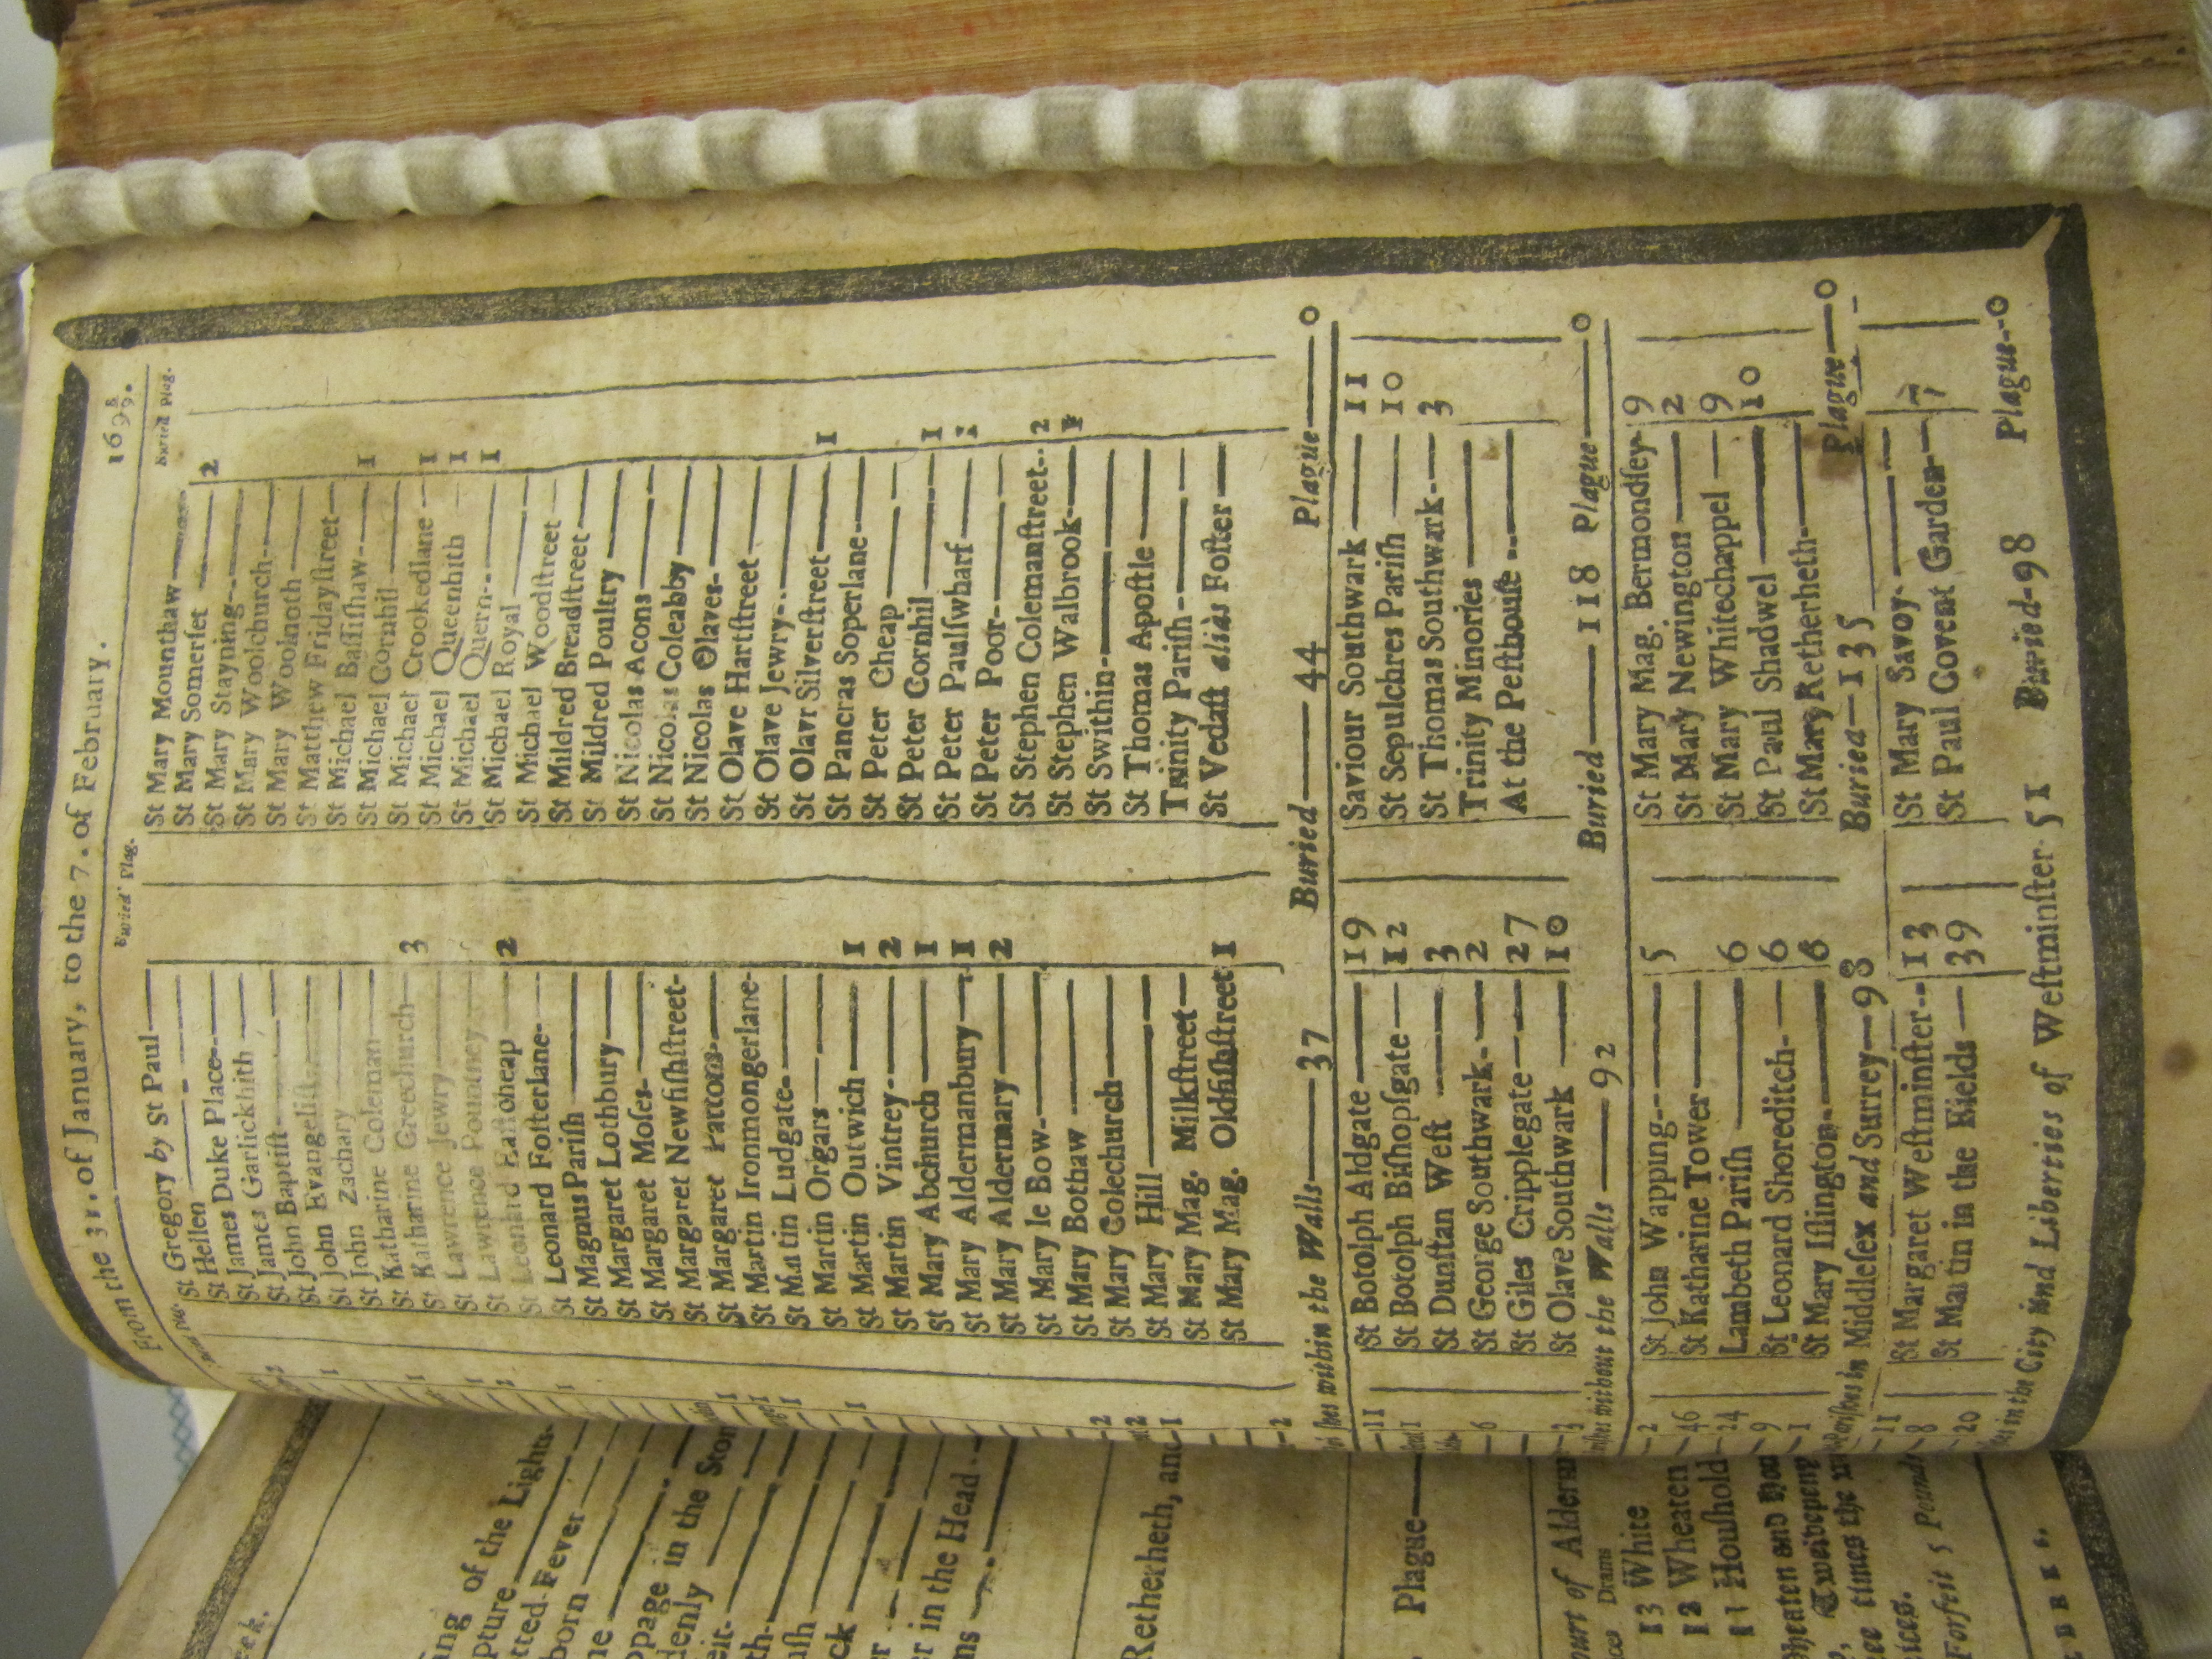 From the 31. of January, to the 7. of February. 169 8/9.
Buried Plag.
St Gregory by St Paul——
St Hellen ——
St James Duke Place——
St James Garlickhith ——
St John Baptiſt——
St John Evangeliſt——
St John Zachary——
St Katharine Coleman——
St Katharine Creechurch— 3
St Lawrence Jewry——
St Lawrence Pountney——
St Leonard Eaſtcheap —— 2
St Leonard Foſterlane——
St Magnus Pariſh ——
St Margaret Lothbury——
St Margaret Moſes——
St Margaret Newfiſhſtreet-
St Margaret Pattons——
St Martin Ironmongerlane-
St Martin Ludgate——
St Martin Orgars——
St Martin Outwich—— 1
St Martin Vintrey—— 2
St Mary Abchurch—— 1
St Mary Aldermanbury—— 1
St Mary Aldermary—— 2
St Mary le Bow——
St Mary Bothaw ——
St Mary Colechurch——
St Mary Hill——
St Mary Mag. Milkſtreet—
St Mary Mag. Oldfiſhſtreet 1
Buried Plag.
St Mary Mounthaw——
St Mary Somerſet —— 2
St Mary Stayning——
St Mary Woolchurch——
St Mary Woolnoth ——
St Matthew Fridayſtreet—
St Michael Baſſiſhaw—— 1
St Michael Cornhil——
St Michael Crookedlane — 1
St Michael Queenhith — 1
St Michael Quern—— 1
St Michael Royal ——
St Michael Woodſtreet —
St Mildred Breadſtreet——
St Mildred Poultry ——
St Nicolas Acons——
St Nicolas Coleabby——
St Nicolas Olaves——
St Olave Hartſtreet——
St Olave Jewry——
St Olavr Silverſtreet—— 1
St Pancras Soperlane——
St Peter Cheap——
St Peter Cornhil—— 1
St Peter Paulſwharf—— 1
St Peter Poor——
St Stephen Colemanſtreet.. 2
St Stephen Walbrook—— 1
St Swithin——
St Thomas Apoſtle ——
Trinity Pariſh——
St Vedaſt aliàs Foſter ——
within the Walls——37 Buried——44 Plague——0
St Botolph Aldgate —— 19
St Botolph Biſhopſgate— 12
St Dunſtan Weſt —— 3
St George Southwark—— 2
St Giles Cripplegate—— 27
St Olave Southwark —— 10
Saviour Southwark —— 11
St Sepulchres Pariſh —— 10
St Thomas Southwark—— 3
Trinity Minories ——
At the Peſthouſe ——
without the Walls——92 Buried——118 Plague——0
St John Wapping—— 5
St Katharine Tower——
Lambeth Pariſh —— 6
St Leonard Shoreditch—— 6
St Mary Iſlington—— 6
St Mary Mag. Bermondſey- 9
St Mary Newington —— 2
St Mary Whitechappel — 9
St Paul Shadwel —— 10
St Mary Retherheth——
in Middleſex and Surrey—98 Buried—135 Plague—0
St Margaret Weſtminſter-- 13
St Martin in the Fields — 39
St Mary Savoy ——
St Paul Covent Garden— 7
in the City and Liberties of Weſtminſter- 51 Buried-98 Plague--0
of the Lights
tted Fever
born
ppage in the
denly
er in the Head
Retherheth, and
Plague——
Court of
Drams
13 White
12 Wheaten
11 Houſhold
Forfeit 5